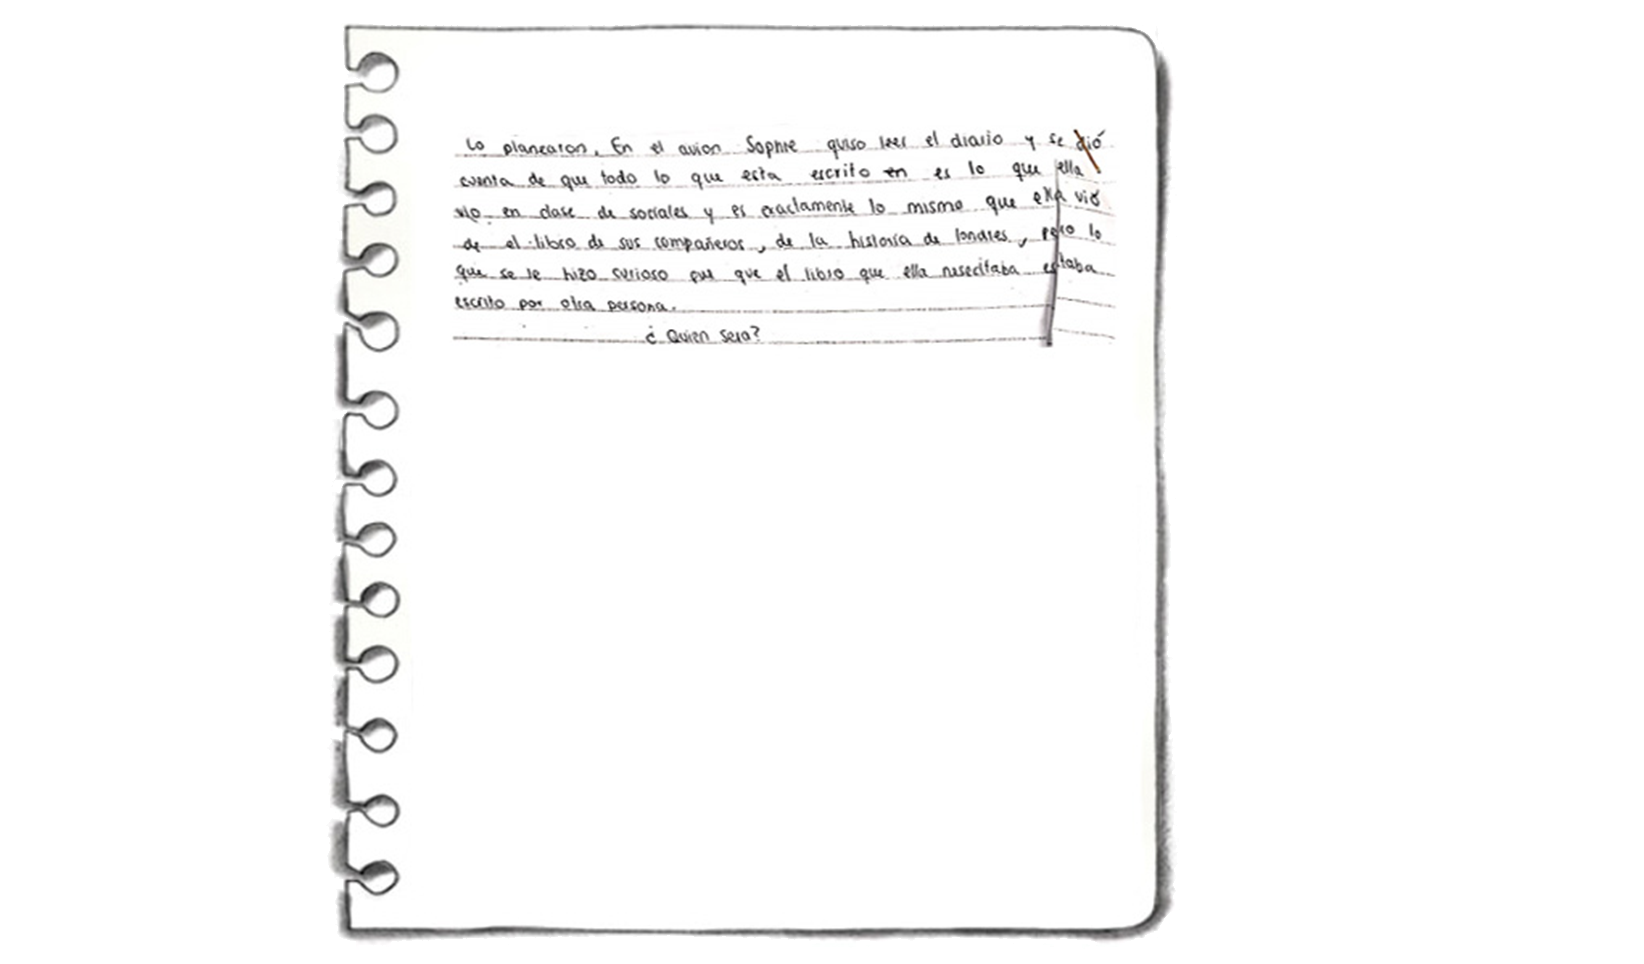 Lo planearon. En el avion Sophie quiso leer el diario y se dió
cuenta de que todo lo que esta escrito en es lo que ella
vio en clase de sociales y es exactamente lo mismo que ella vió
de el libro de sus compañeros, de la historia de londres, pero lo
que se le hizo curioso fue que el libro que ella nesecitaba estaba
escrito por otra persona.
¿Quien sera?